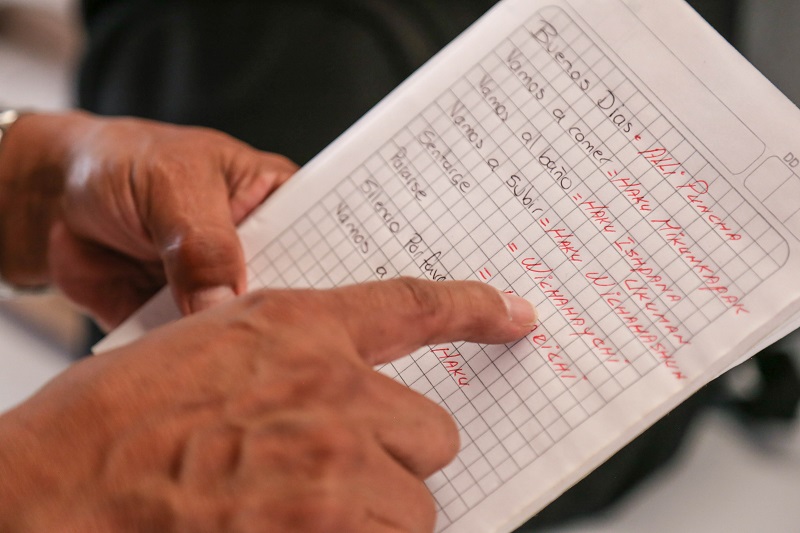 Buenos Días = Alli Puncha
Vamos a comer = Haku Mikunkapak
Vamos al baño = Haku Ishpana
Ukuman
Vamos a subir = Haku Wichahashun
Sentarse = Wichahaychi
Paraise =
Silencio Porfavo
Vamos a Haku